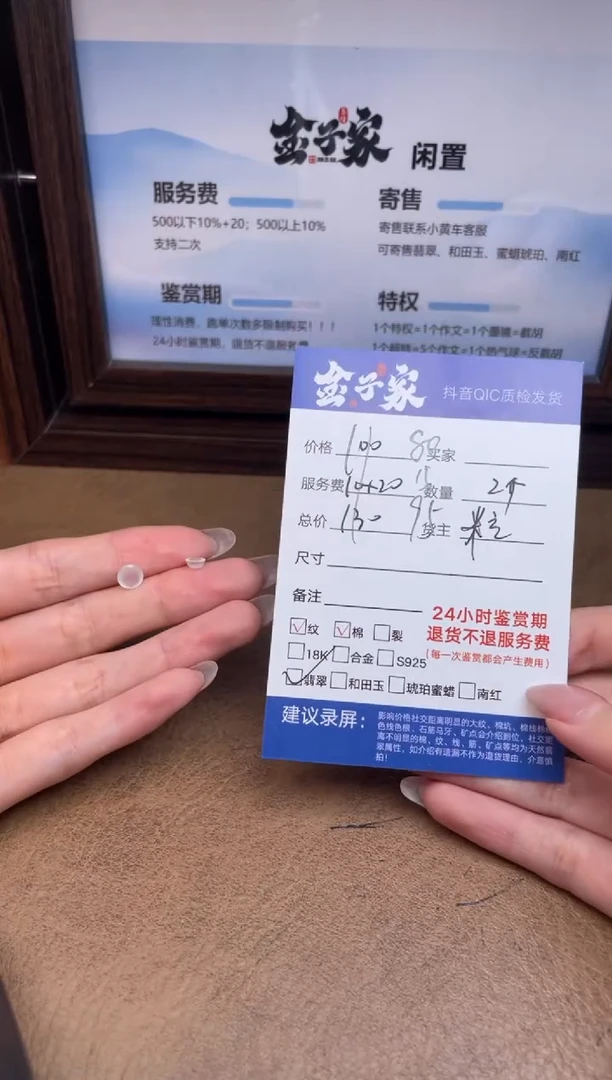 金子家 闲置
服务费
500以下10%+20；500以上10%
支持二次
寄售
寄售联系小黄车客服
可寄售翡翠、和田玉、蜜蜡琥珀、南红
鉴赏期
理性消费，跑单次数多限制购买！！！
24小时鉴赏期，退货不退服务费
特权
1个特权=1个作文=1个墨镜=截胡
金子家 抖音QIC质检发货
价格 100 80 买家
服务费 10+20 数量 2个
总价 130 95 货主
尺寸
备注
24小时鉴赏期
退货不退服务费
(每一次鉴赏都会产生费用)
纹 棉 裂
18K 合金 S925
翡翠 和田玉 琥珀蜜蜡 南红
建议录屏：
影响价格社交距离明显的大纹、棉坑、棉线棉
色线色根、石筋马牙、矿点会介绍到位，社交距
离不明显的棉、纹、线、筋、矿点等均为天然翡
翠属性，如介绍有遗漏不作为退货理由，介意慎
拍！